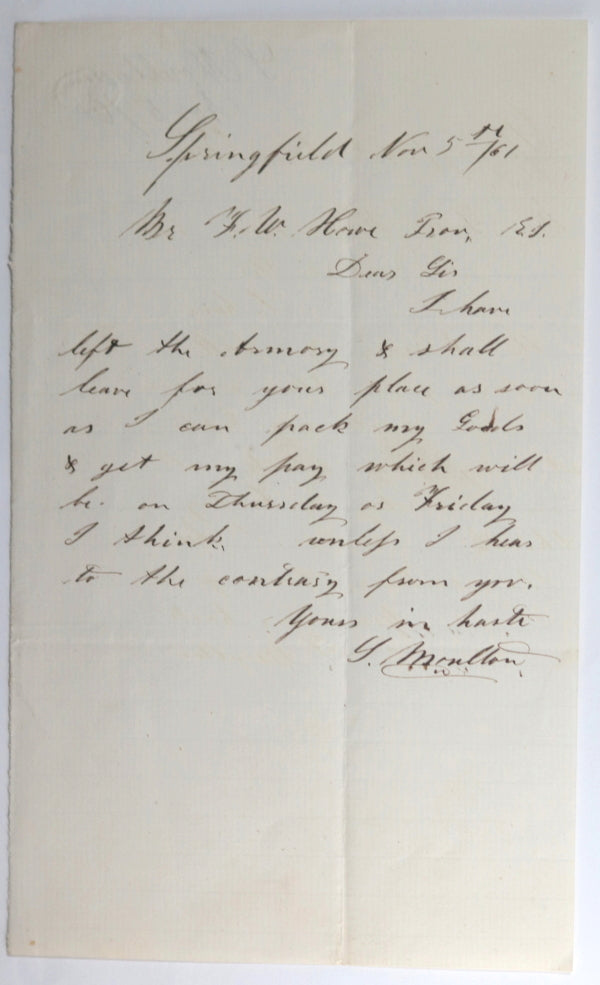 Springfield Nov 5th /61
Mr F. W. Howe Prov. R.I.
Dear Sir
I have
left the Armory & shall
leave for your place as soon
as I can pack my Goods
& get my pay which will
be on Thursday or Friday
I think, unless I hear
to the contrary from you.
Yours in haste
S. Moulton